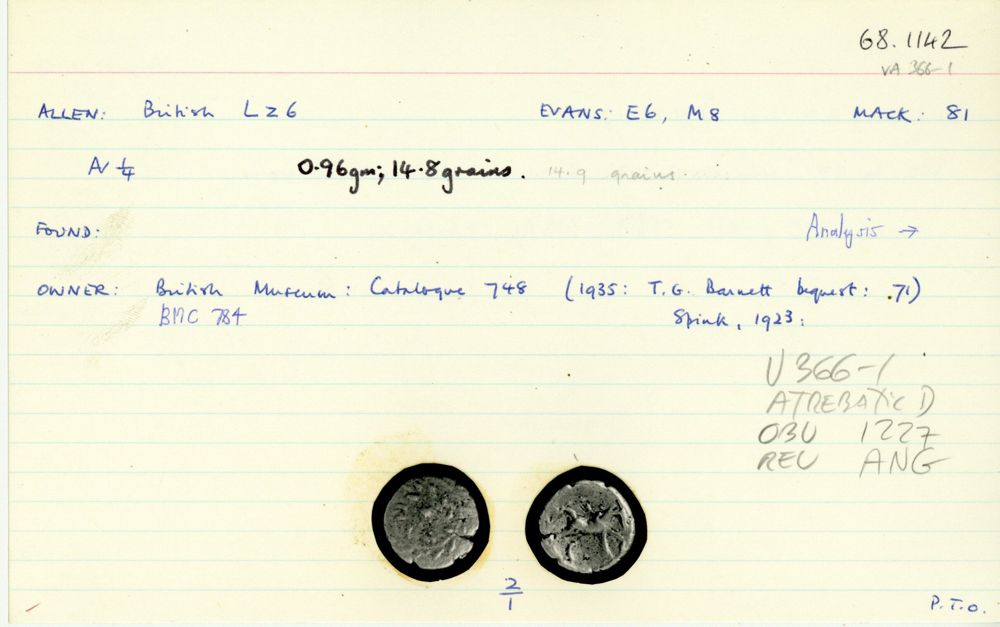 68.1142
VA 366-1
ALLEN: British LZ6 EVANS: E6, M8 MACK: 81
A/ ¼ 0.96gm; 14.8 grains. 14.9 grains.
FOUND: Analysis →
OWNER: British Museum: Catalogue 748 (1935: T.G. Barnett bequest: .71)
BMC 784 Spink, 1923:
V 366-1
ATREBATIC D
OBV 1227
REV ANG
2/1
P.T.O.